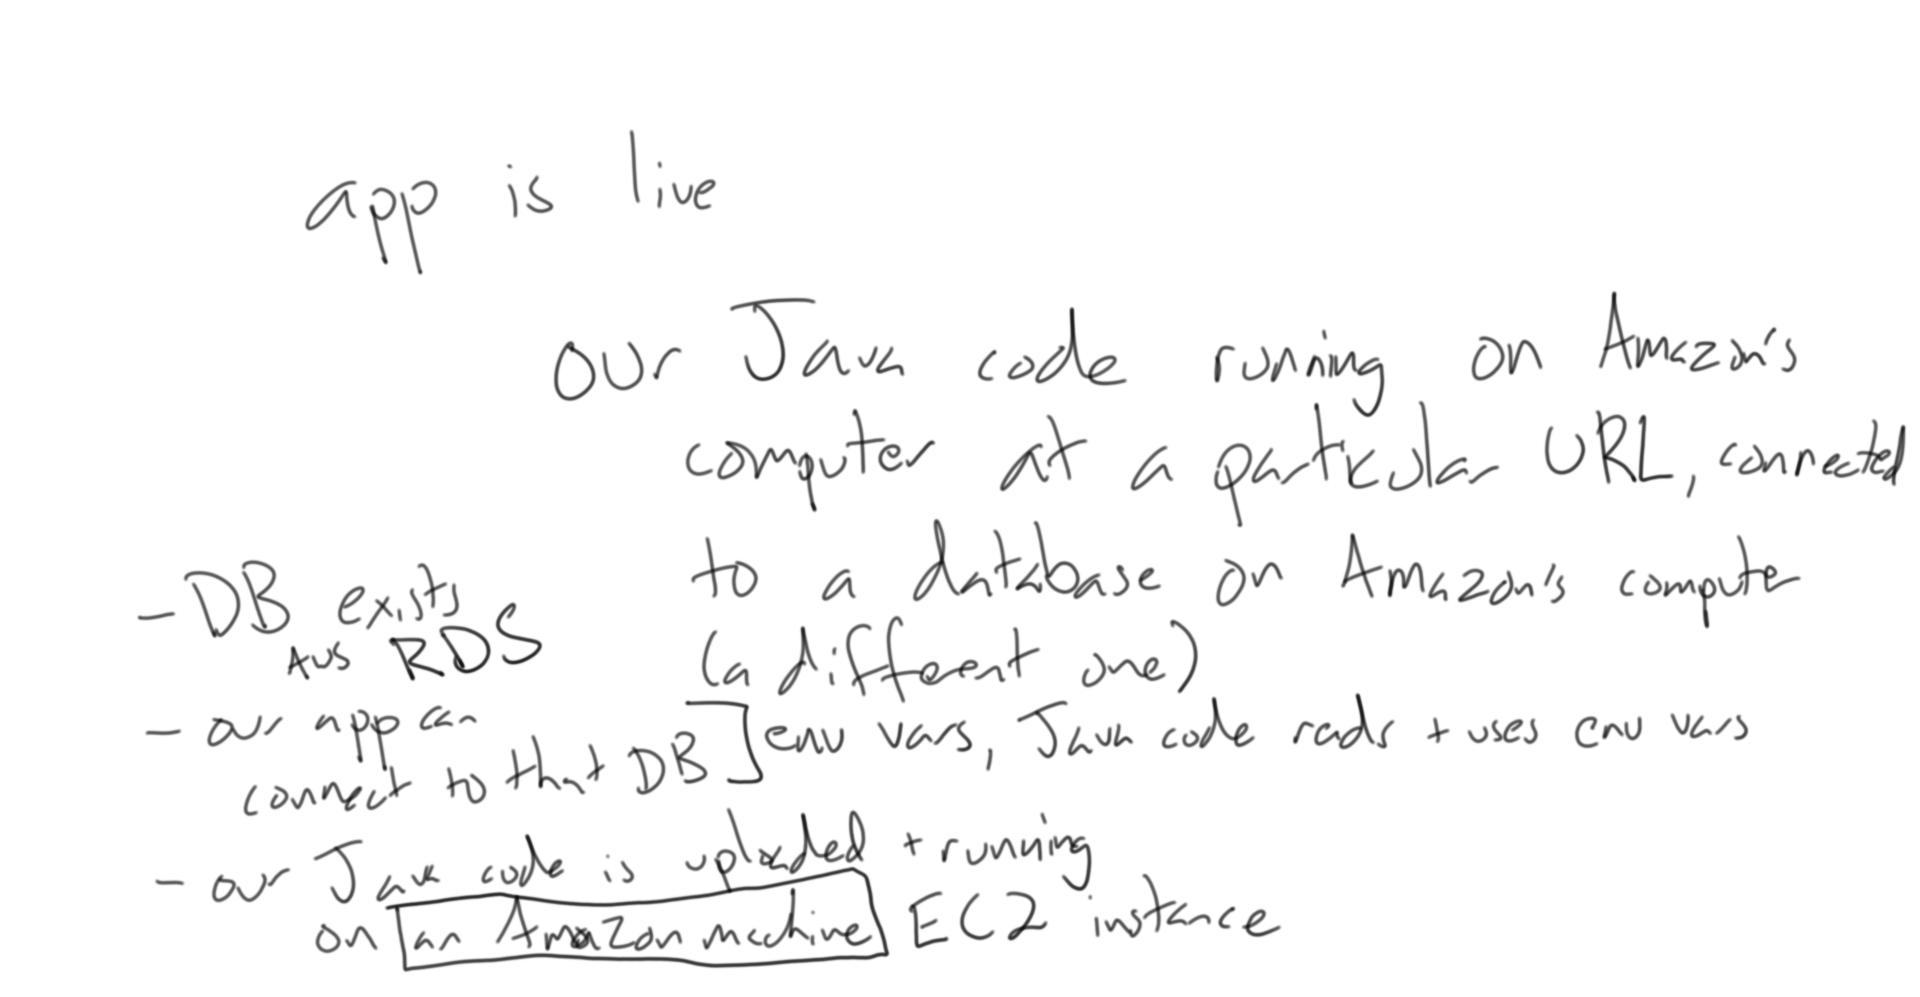 app is live
our Java code running on Amazon's
computer at a particular URL, connected
to a database on Amazon's computer
(a different one)
- DB exists
AWS RDS
- our app can
connect to that DB] env vars, Java code reads + uses env vars
- our Java code is uploaded + running
on an Amazon machine EC2 instance